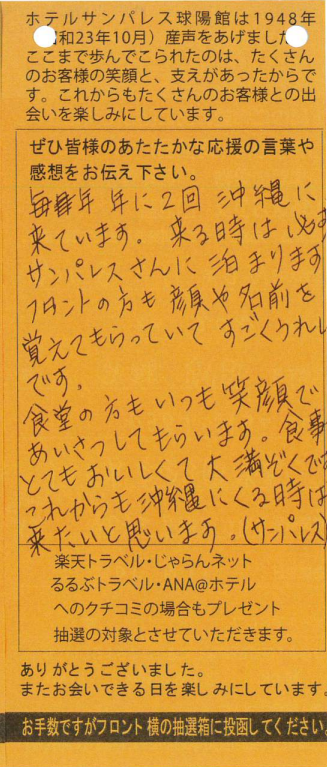 ホテルサンパレス球陽館は1948年
和23年10月）産声をあげました
ここまで歩んでこられたのは、たくさん
のお客様の笑顔と、支えがあったからで
す。これからもたくさんのお客様との出
会いを楽しみにしています。
ぜひ皆様のあたたかな応援の言葉や
感想をお伝え下さい。
毎年 年に2回 沖縄に
来ています。来る時は必ず
サンパレスさんに泊まります
フロントの方も顔や名前を
覚えてもらっていて すごくうれし
です。
食堂の方もいつも笑顔で
あいさつしてもらいます。食事
とてもおいしくて大満ぞくです
これからも沖縄にくる時は
来たいと思います。(サンパレス)
楽天トラベル・じゃらんネット
るるぶトラベル・ANA@ホテル
へのクチコミの場合もプレゼント
抽選の対象とさせていただきます。
ありがとうございました。
またお会いできる日を楽しみにしています。
お手数ですがフロント横の抽選箱に投函してください。